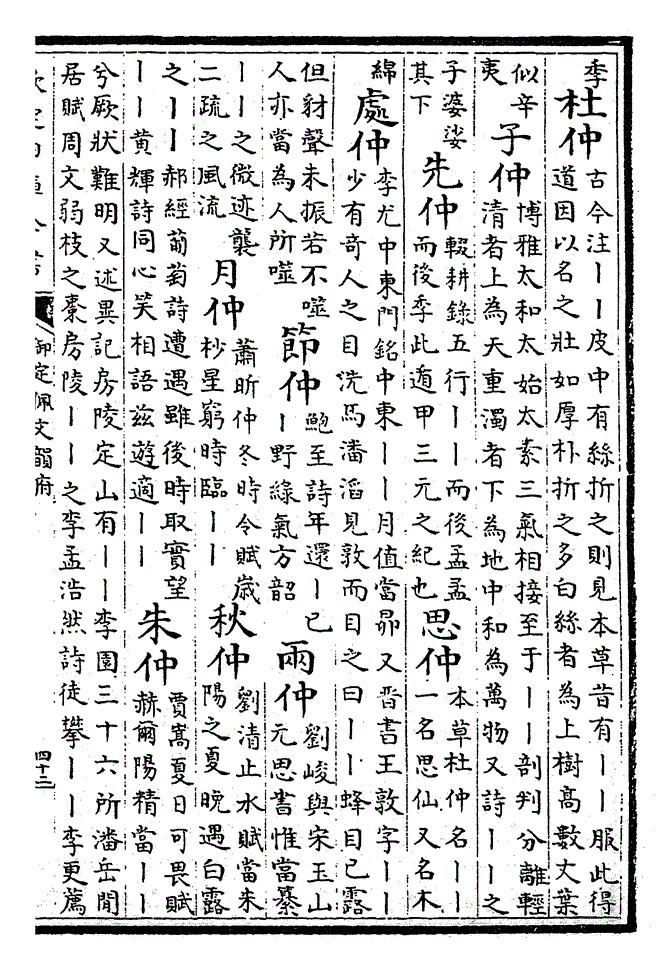 季 杜仲 古今注丨丨皮中有絲折之則見本草昔有丨丨服此得
道因以名之壯如厚朴折之多白絲者為上樹高數丈葉
似辛
夷 子仲 博雅太和太始太素三氣相接至于丨丨剖判分離輕
清者上為天重濁者下為地中和為萬物又詩丨丨之
子婆娑
其下 先仲 輟耕錄五行丨丨而後孟孟
而後季此遁甲三元之紀也 思仲 本草杜仲名丨丨
一名思仙又名木
綿 處仲 李尤中東門銘中東丨丨月值當昴又晉書王敦字丨丨
少有奇人之目洗馬潘滔見敦而目之曰丨丨蜂目已露
但豺聲未振若不噬
人亦當為人所噬 節仲 鮑至詩年還丨已
丨野綠氣方韶 兩仲 劉峻與宋玉山
元思書惟當纂
丨丨之微迹襲
二疏之風流 月仲 蕭昕仲冬時令賦歲
杪星窮時臨丨丨 秋仲 劉清止水賦當朱
陽之夏晚遇白露
之丨丨郝經葡萄詩遭遇雖後時取實望
丨丨黄輝詩同心笑相語兹遊適丨丨 朱仲 賈嵩夏日可畏賦
赫爾陽精當丨丨
兮厥狀難明又述異記房陵定山有丨丨李園三十六所潘岳閒
居賦周文弱枝之棗房陵丨丨之李孟浩然詩徒攀丨丨李更薦
御定佩文韻府
四十三